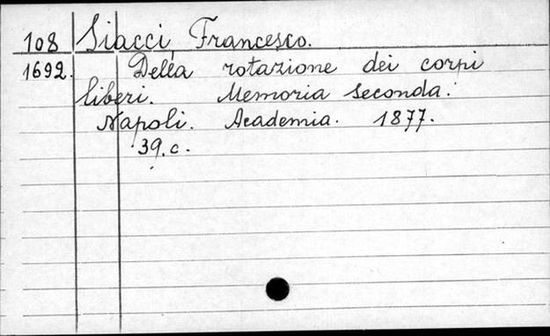 108 Siacci, Francesco.
1692. Della rotazione dei corpi
liberi. Memoria seconda.
Napoli. Academia. 1877.
39.c.